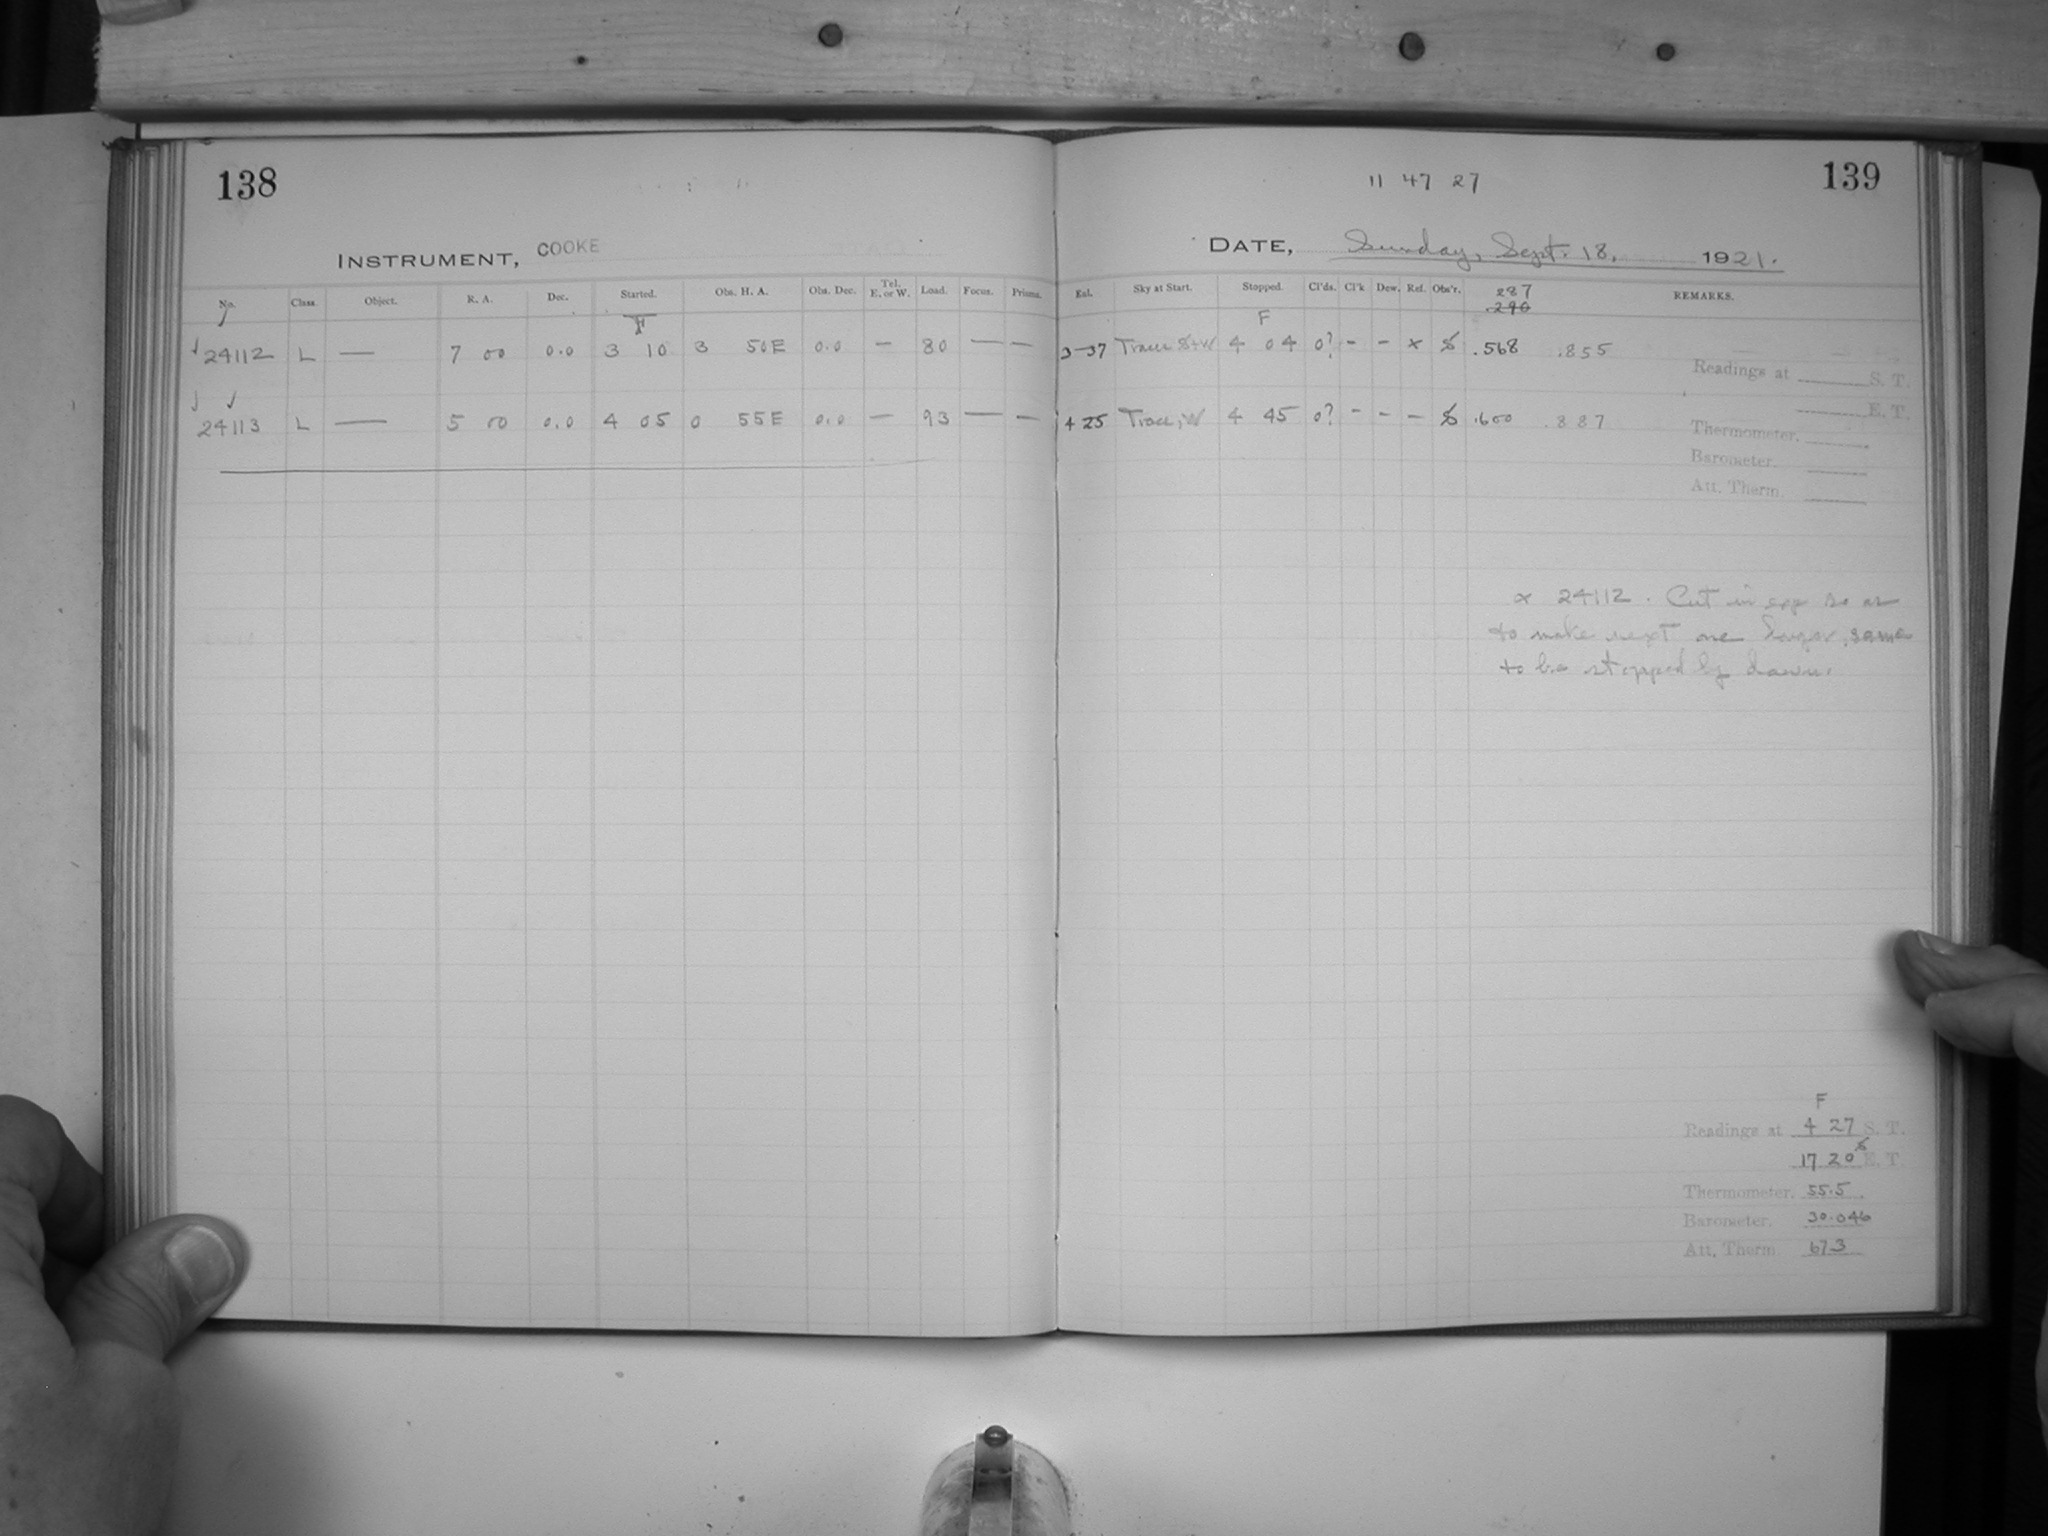 138
11 47 27
139
INSTRUMENT, COOKE
DATE, Sunday, Sept. 18, 1921.
No. Class. Object. R. A. Dec. Started. Obs. H. A. Obs. Dec. Tel. E. or W. Load. Focus. Prisms. Enl. Sky at Start. Stopped. Cl'ds. Cl'k Dew. Ref. Obs'r. 287 REMARKS.
290
F F
24112 L — 7 00 0.0 3 10 3 50E 0.0 — 80 — — 3 37 Trace S+W 4 04 0? - - x .568 .855
Readings at S. T.
E. T.
24113 L — 5 00 0.0 4 05 0 55E 0.0 — 93 — — 4 25 Trace, W 4 45 0? - - - .600 .887
Thermometer.
Barometer.
Att. Therm
x 24112. Cut in exp so as
to make next one longer, same
to be stopped by dawn.
F
Readings at 4 27 S. T.
17 20 E. T.
Thermometer. 55.5
Barometer. 30.046
Att. Therm 67.3